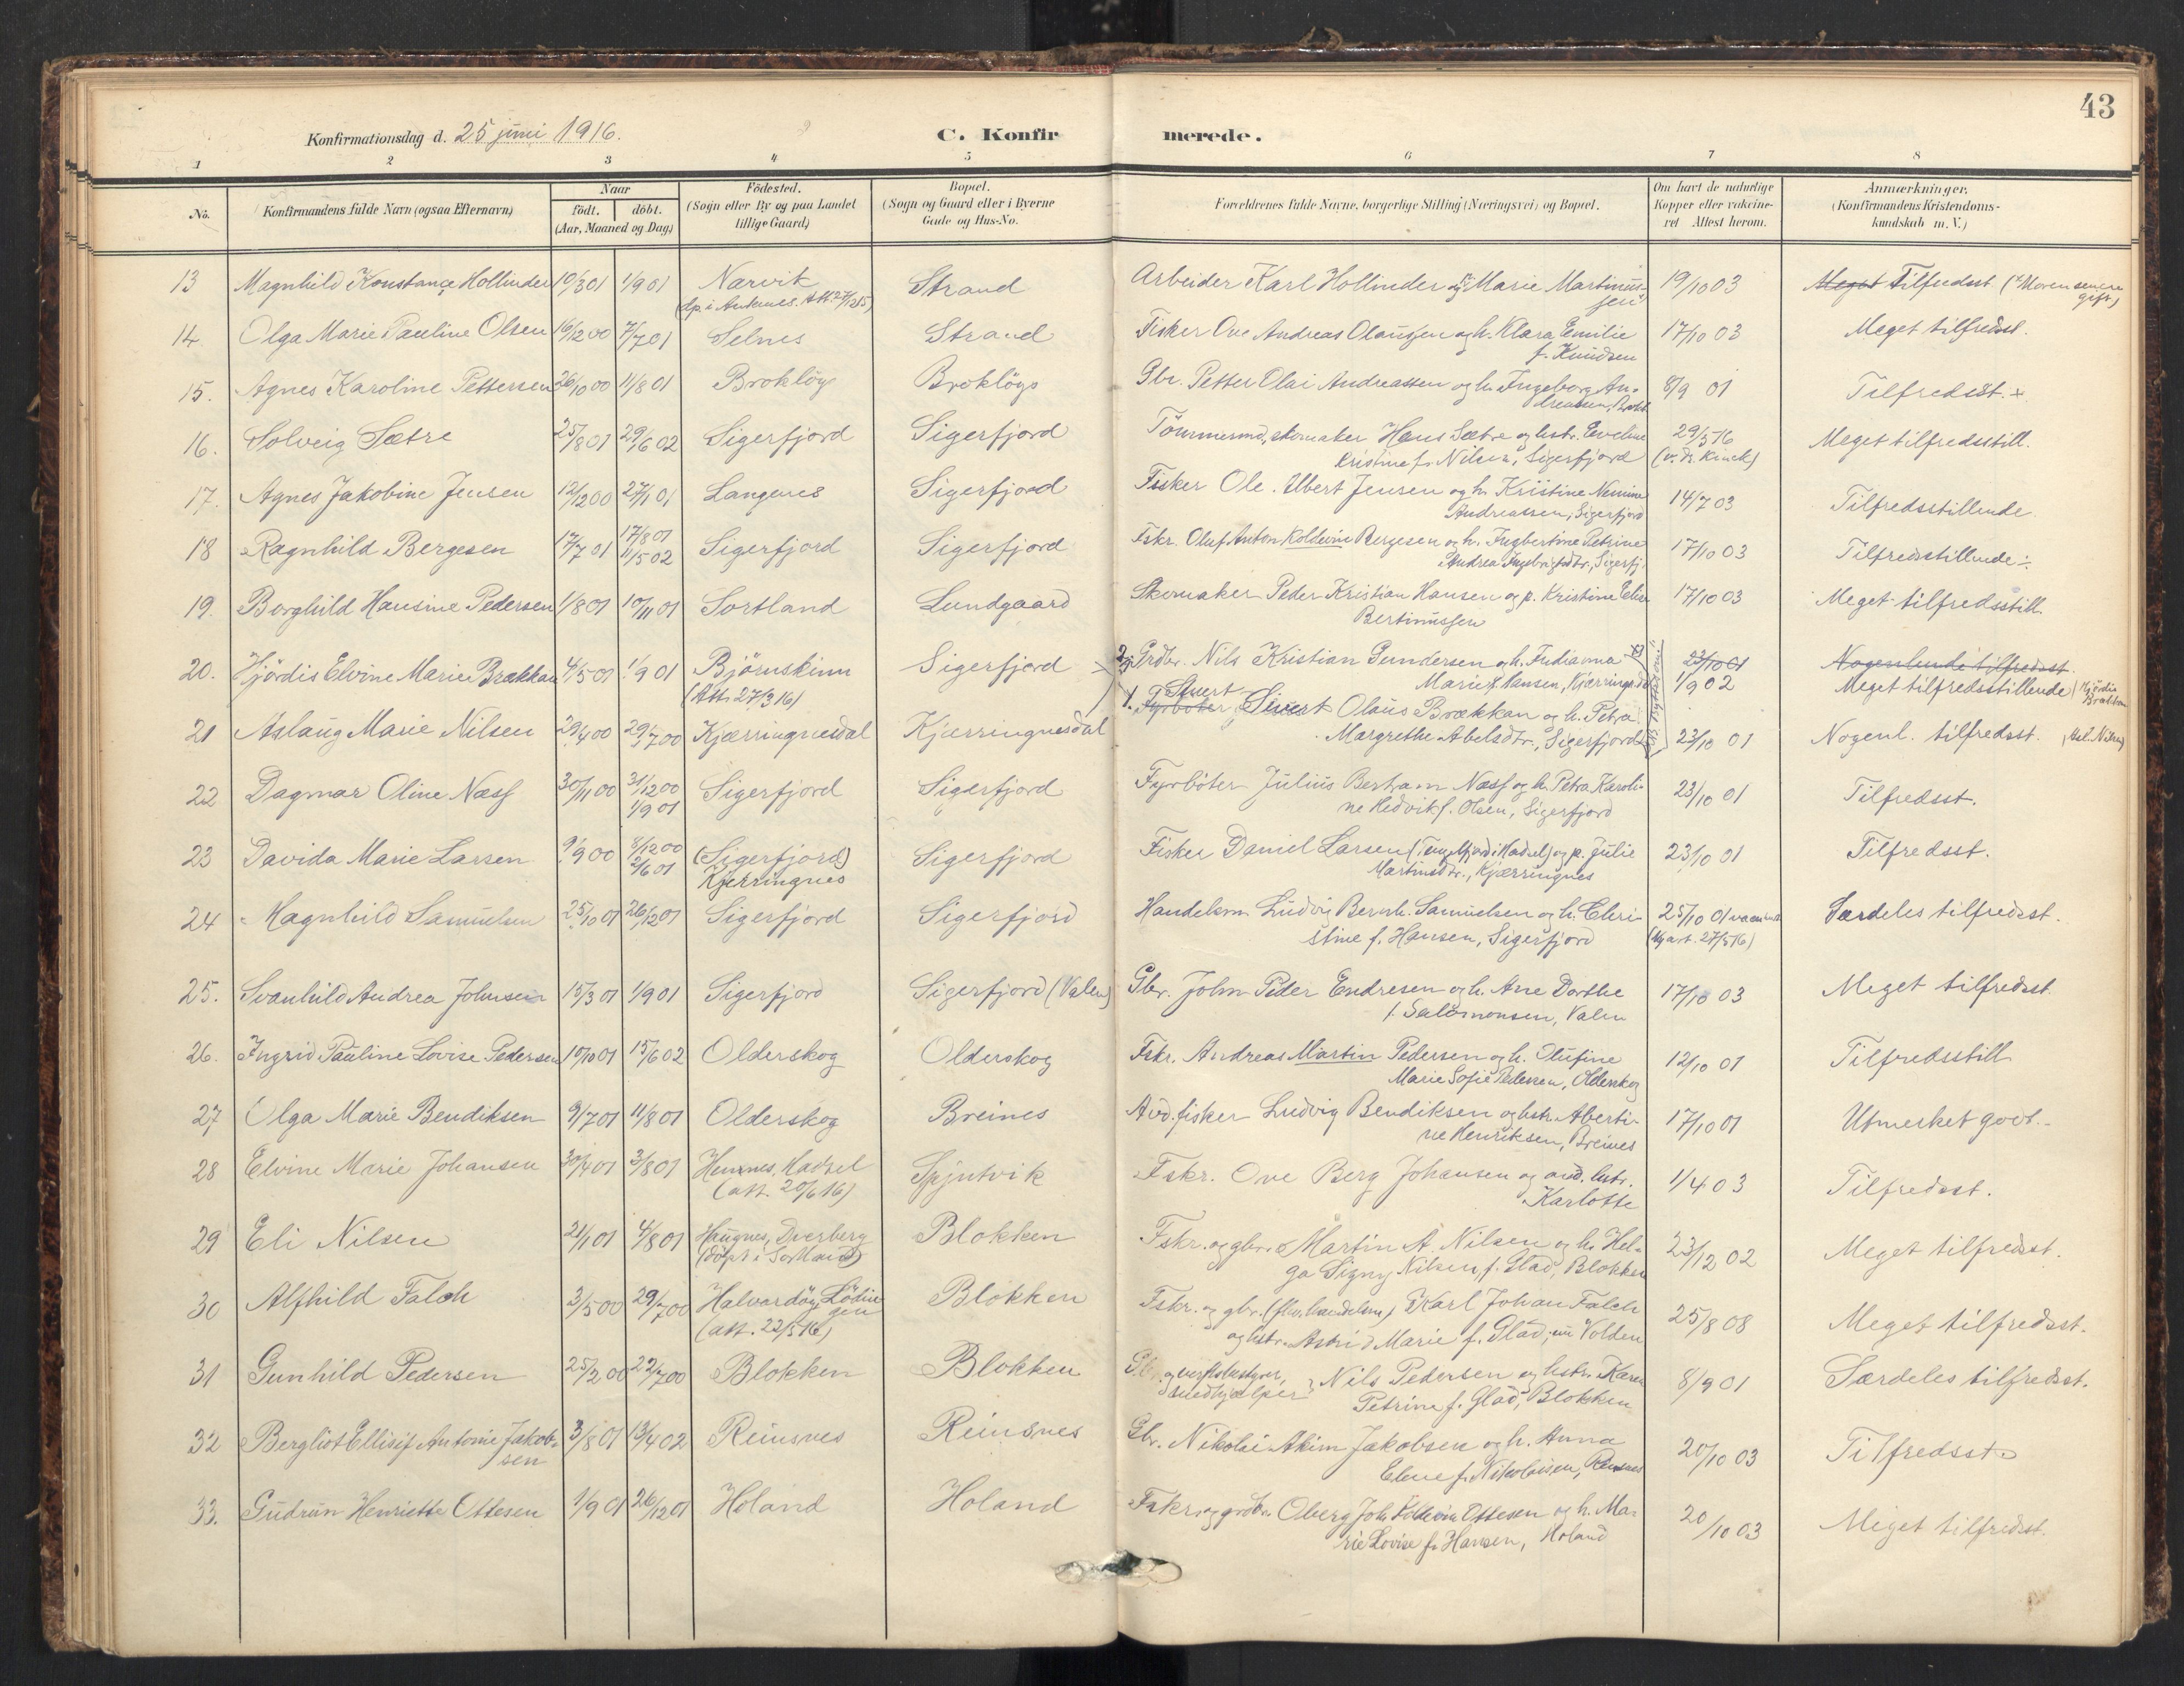 43
Konfirmationsdag d. 25 juni 1916.
C. Konfirmerede.
1 2 3 4 5 6 7 8
No. Konfirmandens fulde Navn (ogsaa Efternavn) Naar født. døbt. (Aar, Maaned og Dag) Födested. (Sogn eller By og paa Landet tillige Gaard) Bopæl. (Sogn og Gaard eller i Byerne Gade og Hus-No. Forældrenes fulde Navne, borgerlige Stilling (Næringsvei) og Bopæl. Om havt de naturlige Kopper eller vakcineret Attest herom. Anmærkninger. (Konfirmandens Kristendomskundskab m. V.)
13 Magnhild Konstance Hollinder 10/3 01 1/9 01 Narvik Strand Arbeider Karl Hollinder og Marie Martinus- 19/10 03 Meget Tilfredsst (Moren senere
(dp. i Andenes. Att. 27/2 15) sen gift)
14. Olga Marie Pauline Olsen 16/12 00 7/7 01 Selnes Strand Fisker Ove Andreas Olaussen og h. Klara Emilie 17/10 03 Meget tilfredsst.
f. Knudsen
15. Agnes Karoline Pettersen 26/10 00 11/8 01 Brokløys Brokløys Gbr. Petter Olai Andreassen og h. Ingeborg An- 8/9 01 Tilfredsst.
dreassen, Brokl.
16. Solveig Sætre 25/8 01 29/6 02 Sigerfjord Sigerfjord Tömmermd, skomaker Hans Sætre og hstr. Eveline 29/5 16 Meget tilfredsstill.
Kristine f. Nilsen, Sigerfjord (v. dr. Kinck)
17. Agnes Jakobine Jensen 12/12 00 27/1 01 Langenes Sigerfjord Fisker Ole Albert Jensen og h. Kristine Nemine 14/7 03 Tilfredsstillende
Andreassen, Sigerfjord
18 Ragnhild Bergesen 17/7 01 17/8 01 Sigerfjord Sigerfjord Fskr. Oluf Anton Koldevin Bergesen og h. Ingbertine Petrine 17/10 03 Tilfredsstillende ÷
11/5 02 Andrea Ingebrigtsdtr., Sigerfj.
19. Borghild Hansine Pedersen 1/8 01 10/11 01 Sortland Lundgaard Skomaker Peder Kristian Hansen og p. Kristine Elise 17/10 03 Meget tilfredsstill.
Bertinussen
20. Hjördis Elvine Marie Brækkan 4/5 01 1/9 01 Bjørnskinn Sigerfjord 2) Grdbr. Nils Kristian Gundersen og h. Indianna 23/10 01 Nogenlunde tilfredsst.
(Att. 27/3 16) Marie f. Hansen, Kjærringnesd. 1/9 02 Meget tilfredsstillende (Hjördis Brækkan
21 Aslaug Marie Nilsen 29/4 00 29/7 00 Kjærringnesdal Kjærringnesdal 1. Fyrböter Stuert Sivert Olaus Brækkan og h. Petra 23/10 01 Nogenl. tilfredsst. (Asl. Nilsen)
Margrethe Abelsdtr., Sigerfjord
22 Dagmar Oline Næss 30/11 00 31/12 00 Sigerfjord Sigerfjord Fyrböter Julius Bertram Næss og h. Petra Karoli- 23/10 01 Tilfredsst.
1/9 01 ne Hedvik f. Olsen, Sigerfjord
23 Davida Marie Larsen 9/9 00 8/12 00 (Sigerfjord) Sigerfjord Fisker Daniel Larsen (Tengelfjord i Hadsel) og p. Julie 23/10 01 Tilfredsst.
2/6 01 Kjerringnes Martinsdtr., Kjærringnes
24 Magnhild Samuelsen 25/10 01 26/12 01 Sigerfjord Sigerfjord Handelsm. Ludvig Bernh. Samuelsen og h. Chri- 25/10 01 Særdeles tilfredsst.
stine f. Hansen, Sigerfjord (Ny att. 27/5 16)
25. Svanhild Andrea Johnsen 15/3 01 1/9 01 Sigerfjord Sigerfjord (Valen) Gbr. John Peder Endresen og h. Ane Dorthe 17/10 03 Meget tilfredsst.
f. Salomonsen, Valen
26. Ingrid Pauline Lovise Pedersen 10/10 01 15/6 02 Olderskog Olderskog Fskr. Andreas Martin Pedersen og h. Olufine 12/10 01 Tilfredsstill
Marie Sofie Pedersen, Olderskog
27 Olga Marie Bendiksen 9/7 01 11/8 01 Olderskog Breines Avd. fisker Ludvig Bendiksen og hstr. Aberti- 17/10 01 Utmerket godt.
ne Henriksen, Breines
28 Elvine Marie Johansen 30/4 01 3/8 01 Hennes, Hadsel Spjutvik Fskr. Ove Berg Johansen og avd. hstr. 1/4 03 Tilfredsst.
(att. 20/6 16) Karlotte
29 Eli Nilsen 21/1 01 4/8 01 Haugnes, Dverberg Blokken Fskr. og gbr. Martin A. Nilsen og h. Hel- 23/12 02 Meget tilfredsst.
(döpt i Sortland) ga Signy Nilsen, f. Glad, Blokken
30 Alfhild Falch 3/5 00 29/7 00 Halvardöy, Lödin Blokken Fskr. og gbr. (fhv. handelsm) Karl Johan Falch 25/8 08 Meget tilfredsst.
gen
(att. 22/5 16) og hstr. Astrid Marie f. Glad, Volden
31 Gunhild Pedersen 25/2 00 22/7 00 Blokken Blokken Gbr. Nils Pedersen og hstr. Karen 8/9 01 Særdeles tilfredsst.
medhjælper Petrine f. Glad, Blokken
32 Bergliot Ellisif Antonie Jakob- 3/8 01 13/4 02 Reinsnes Reinsnes Gbr. Nikolai Akim Jakobsen og h. Anna 20/10 03 Tilfredsst.
sen Elene f. Nikolaisen, Reinsnes
33. Gudrun Henriette Ottesen 1/9 01 26/12 01 Holand Holand Fskr. og grdbr. Oberg Joh. Koldevin Ottesen og h. Ma- 20/10 03 Meget tilfredsst.
rie Lovise f. Hansen, Holand